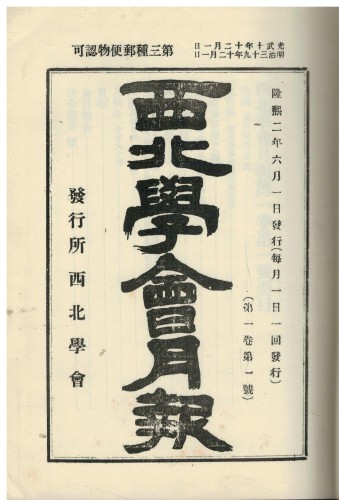 光武十年十二月一日
明治三十九年十二月一日
第三種郵便物認可
隆熙二年六月一日發行(每月一日一回發行)
(第一卷第一號)
西北學會月報
發行所西北學會